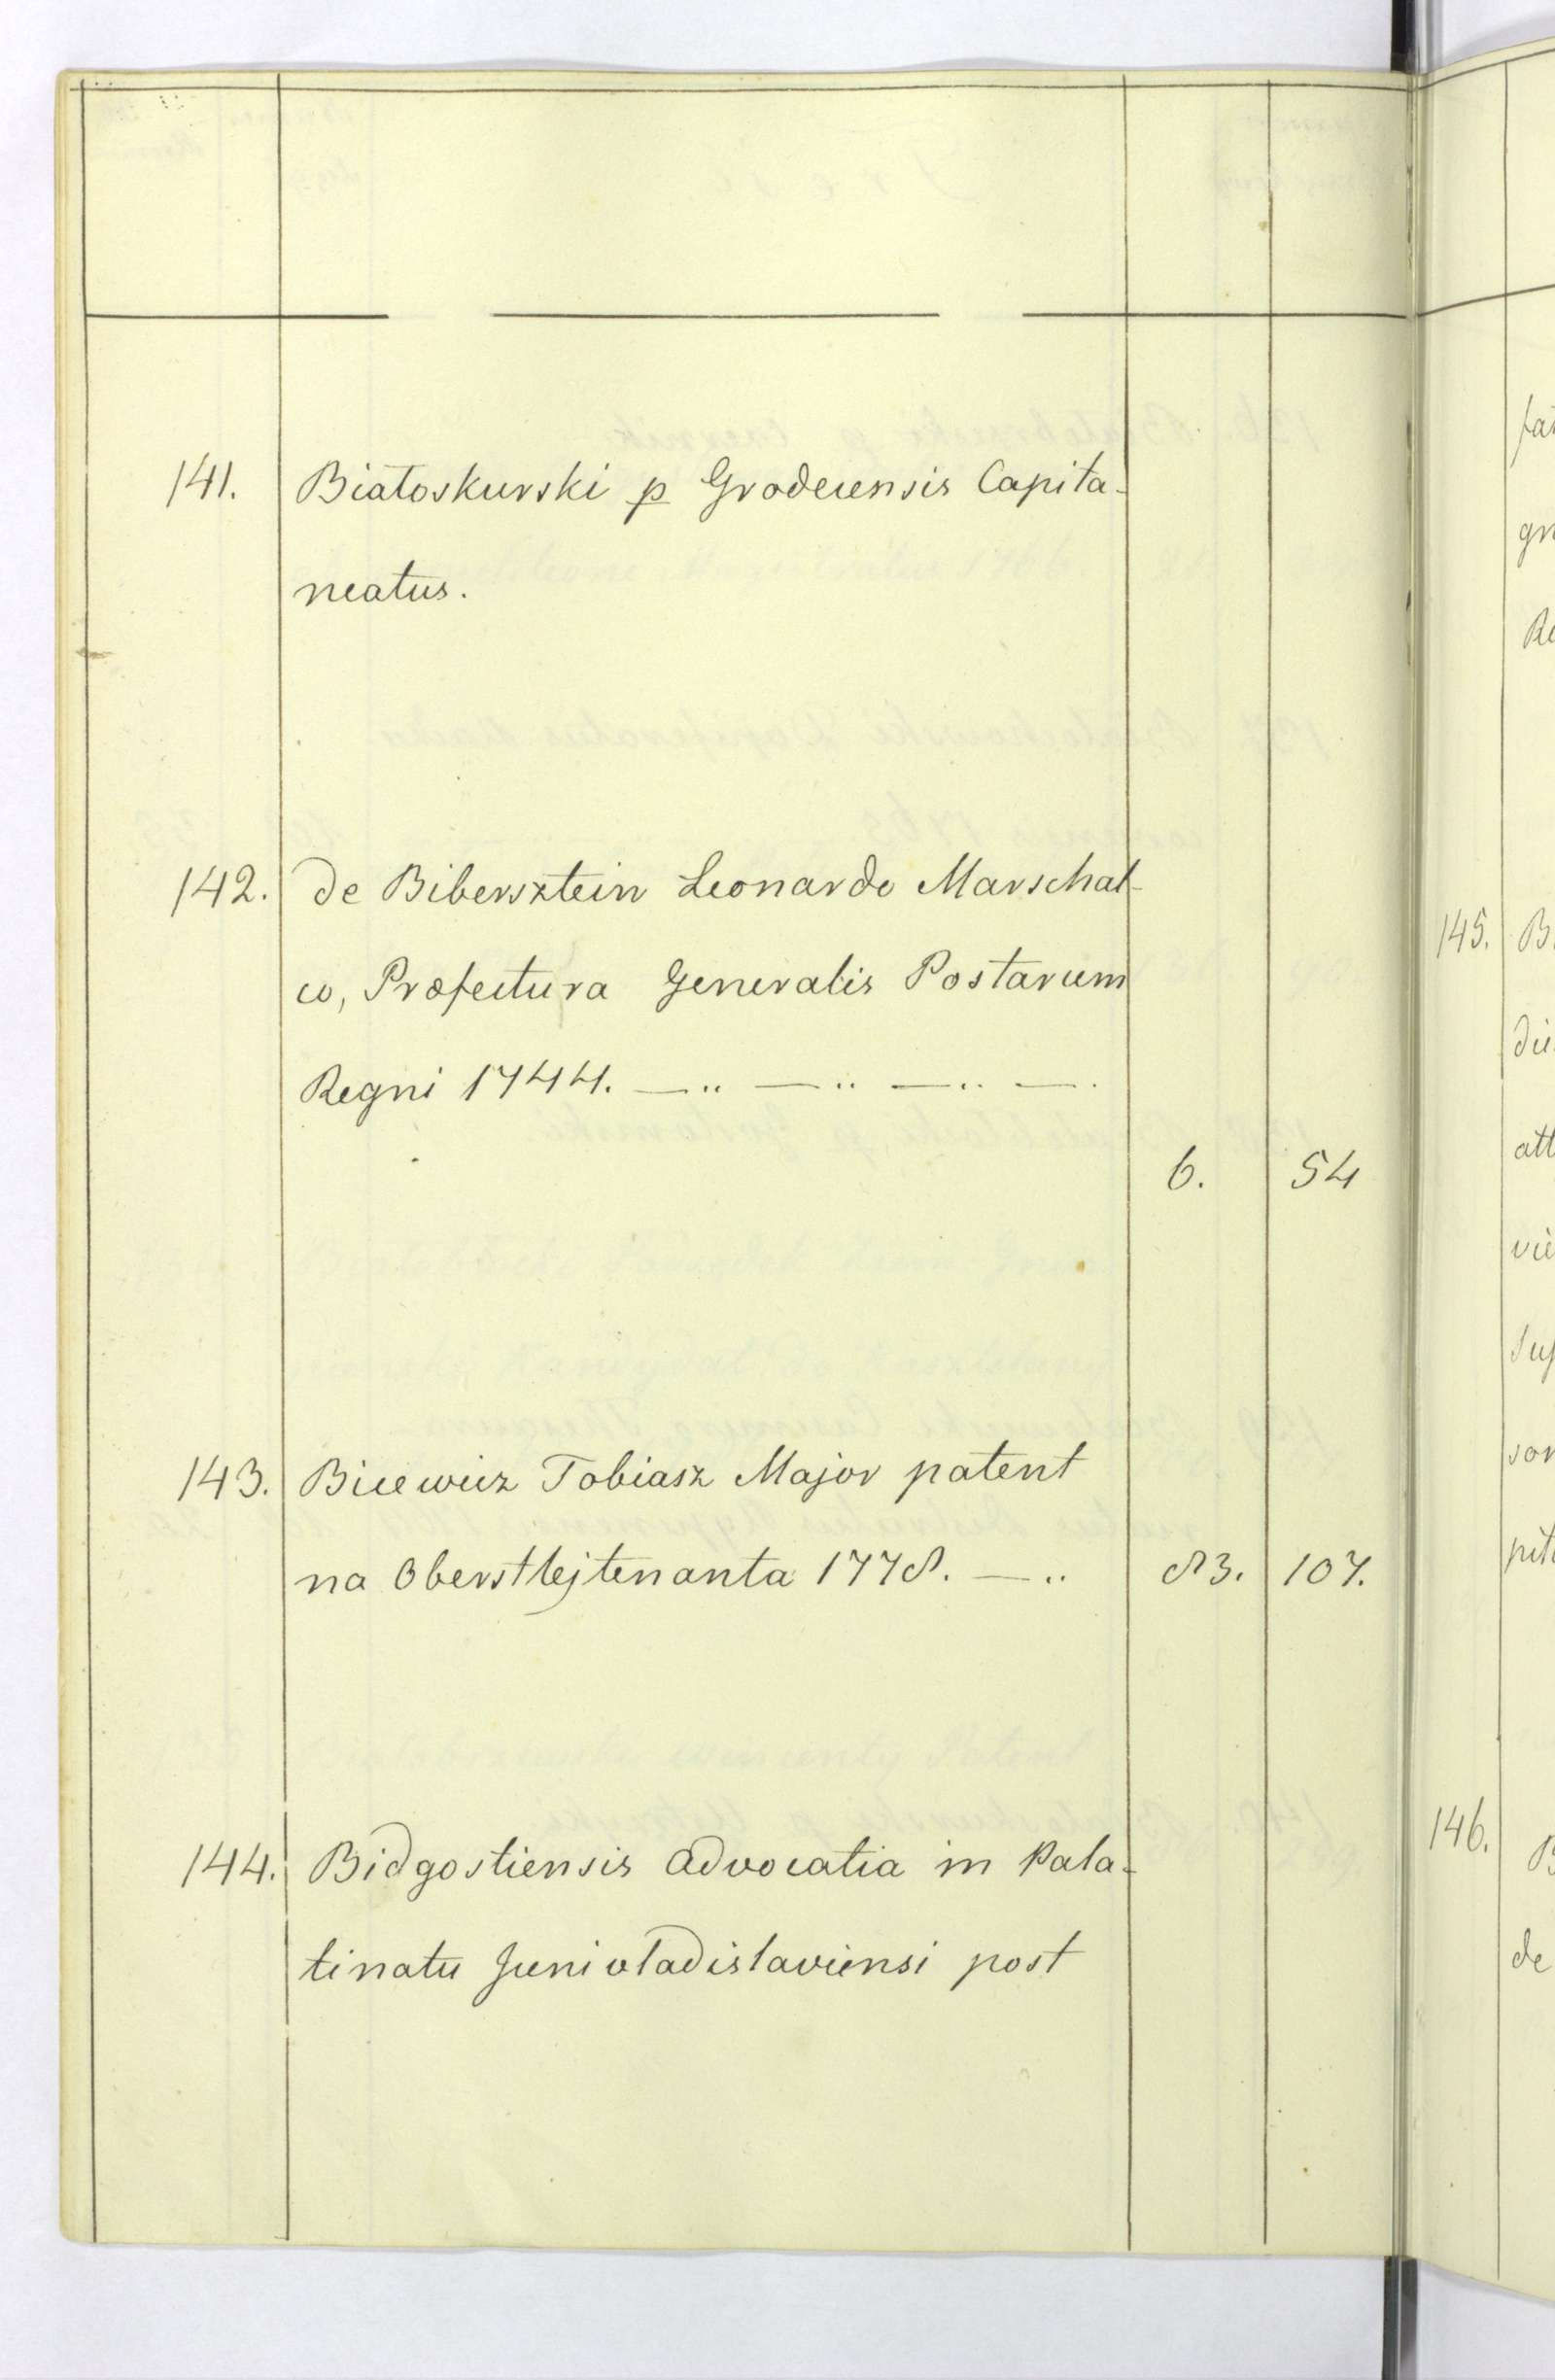 141. Białoskurski p Grodecensis Capita-
neatus.
142. de Bibersztein Leonardo Marschal-
co, Præfectura Generalis Postarum
Regni 1744. —..—..—..—.
6. 54
143. Bicewicz Tobiasz Major patent
na Oberstlejtenanta 1778. —.. 83. 107.
144. Bidgostiensis Advocatia in Pala-
tinatu Junivladislaviensi post
145.
146.
de